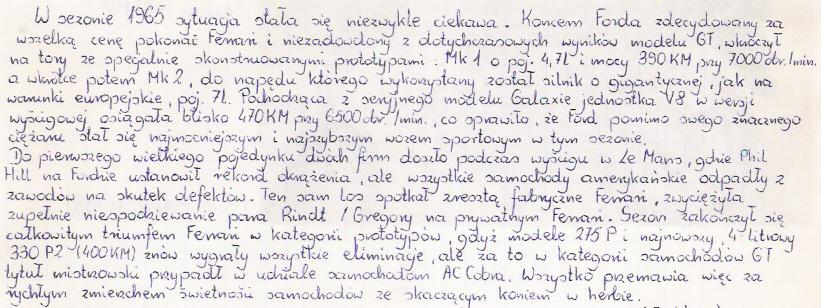 W sezonie 1965 sytuacja stała się niezwykle ciekawa. Koncern Forda zdecydowany za
wszelką cenę pokonać Ferrari i niezadowolony z dotychczasowych wyników modelu GT, wkroczył
na tory ze specjalnie skonstruowanymi prototypami: Mk 1 o poj. 4,7l i mocy 390 KM przy 7000 obr./min.
a wkrótce potem Mk 2, do napędu którego wykorzystany został silnik o gigantycznej, jak na
warunki europejskie, poj. 7l. Pochodząca z seryjnego modelu Galaxie jednostka V8 w wersji
wyścigowej osiągała blisko 470 KM przy 6500 obr./min., co sprawiło, że Ford pomimo swego znacznego
ciężaru stał się najmocniejszym i najszybszym wozem sportowym w tym sezonie.
Do pierwszego wielkiego pojedynku dwóch firm doszło podczas wyścigu w Le Mans, gdzie Phil
Hill na Fordzie ustanowił rekord okrążenia, ale wszystkie samochody amerykańskie odpadły z
zawodów na skutek defektów. Ten sam los spotkał zresztą fabryczne Ferrari, zwyciężyła
zupełnie niespodziewanie para Rindt / Gregory na prywatnym Ferrari. Sezon zakończył się
całkowitym triumfem Ferrari w kategorii prototypów, gdyż modele 275 P i najnowszy, 4-litrowy
330 P2 (400 KM) znów wygrały wszystkie eliminacje, ale za to w kategorii samochodów GT
tytuł mistrzowski przypadł w udziale samochodom AC Cobra. Wszystko przemawia więc za
rychłym zmierzchem świetności samochodów ze skaczącym koniem w herbie.